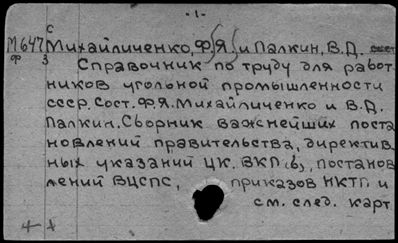 - 1 -
С
М647 Михайличенко, Ф.Я. и Палкин, В.Д. сост
Ф 3 Справочник по труду для работ-
ников угольной промышленности
СССР. Сост. Ф.Я. Михайличенко и В.Д.
Палкин. Сборник важнейших поста
новлений правительства, директив
ных указаний ЦК. ВКП(б), постанов
лений ВЦСПС, приказов НКТП и
см. след. карт